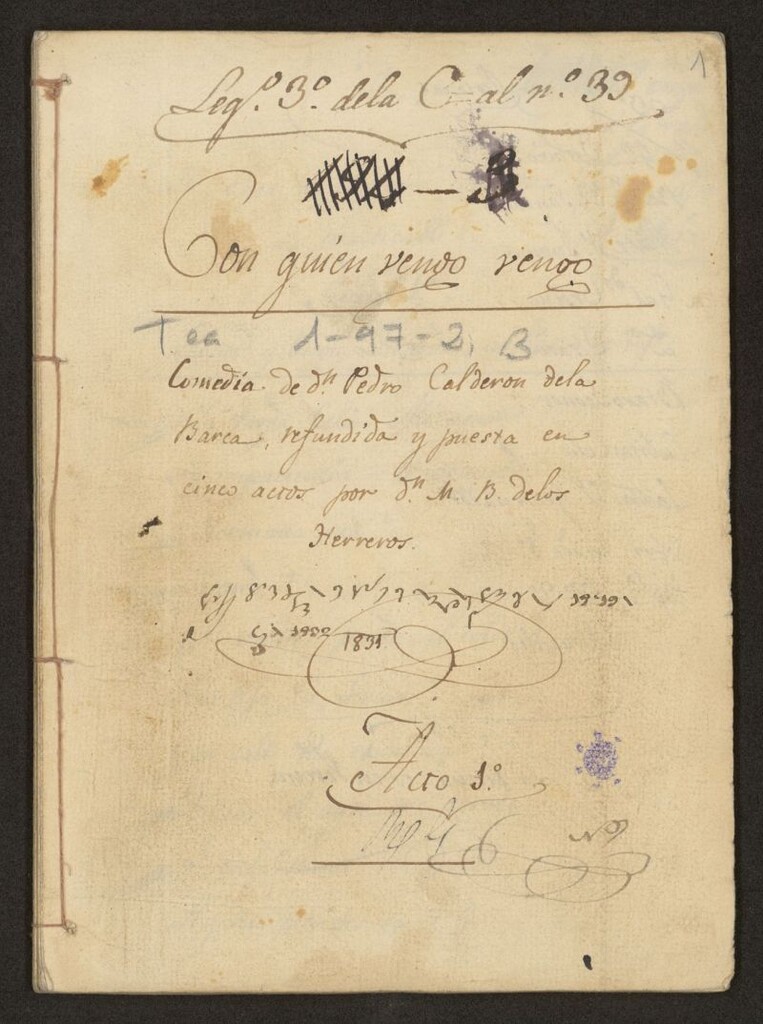 1
Leg.º 3.º dela C al n.º 39
Con quien vengo vengo
Tea 1-97-2, B
Comedia de dn. Pedro Calderon dela
Barca, refundida y puesta en
cinco actos por dn. M. B. delos
Herreros.
1831
Acto 1.º